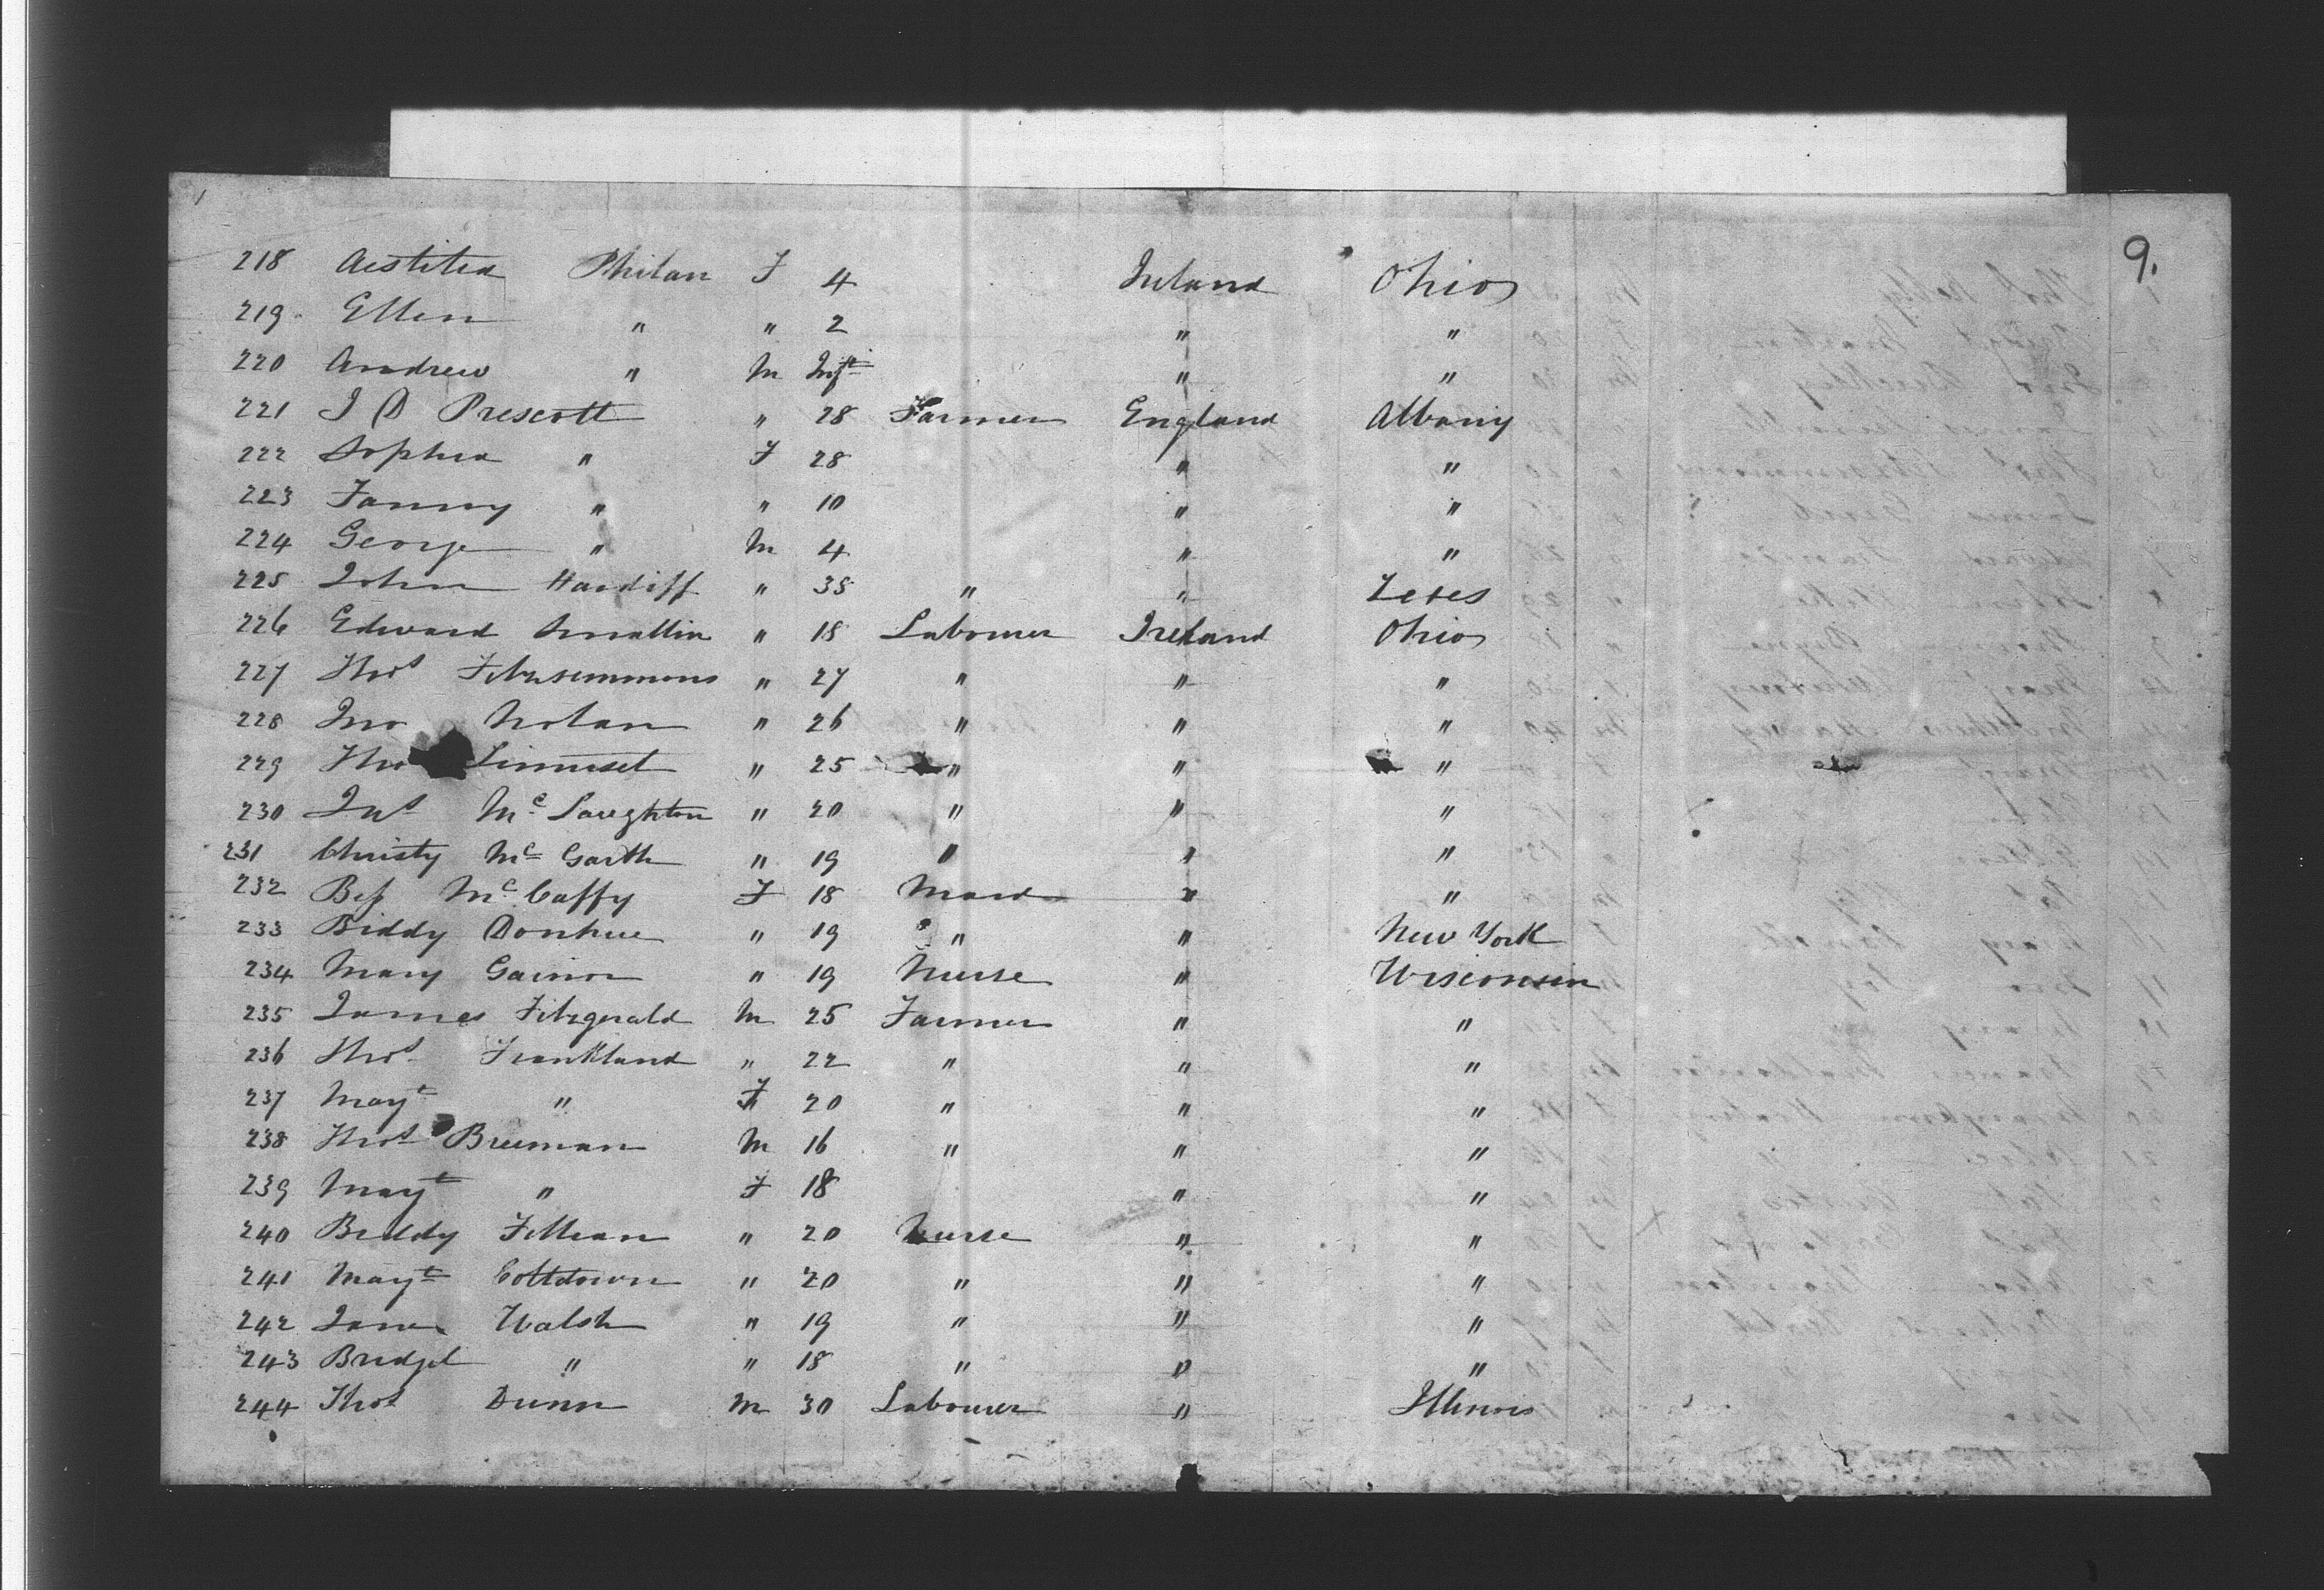 9.
218 Aestitia Philan F 4 Ireland Ohio
219 Ellen " " 2 " "
220 Andrew " M Inft " "
221 J D Prescott " 28 Farmer England Albany
222 Sophia " F 28 " "
223 Fanny " " 10 " "
224 George " M 4 " "
225 John Hardiff " 35 " "
226 Edward Smallin " 18 Labourer Ireland Ohio
227 Thos Fitzsimmons " 27 " " "
228 Jno Nolan " 26 " " "
229 Tho " 25 " " "
230 Jas Mc Laughton " 20 " " "
231 Christy Mc Garth " 19 " " "
232 Bess Mc Caffy F 18 Maid " "
233 Biddy Donhue " 19 " " New York
234 Mary Gainor " 19 Nurse " Wisconsin
235 James Fitzgerald M 25 Farmer " "
236 Thos Frankland " 22 " " "
237 Magt " F 20 " " "
238 Thos Breeman M 16 " " "
239 Magt " F 18 " "
240 Biddy Fillian " 20 Nurse " "
241 Magt Coltdown " 20 " " "
242 Jane Walsh " 19 " " "
243 Bridget " " 18 " " "
244 Thos Dunn M 30 Labourer " Illinois